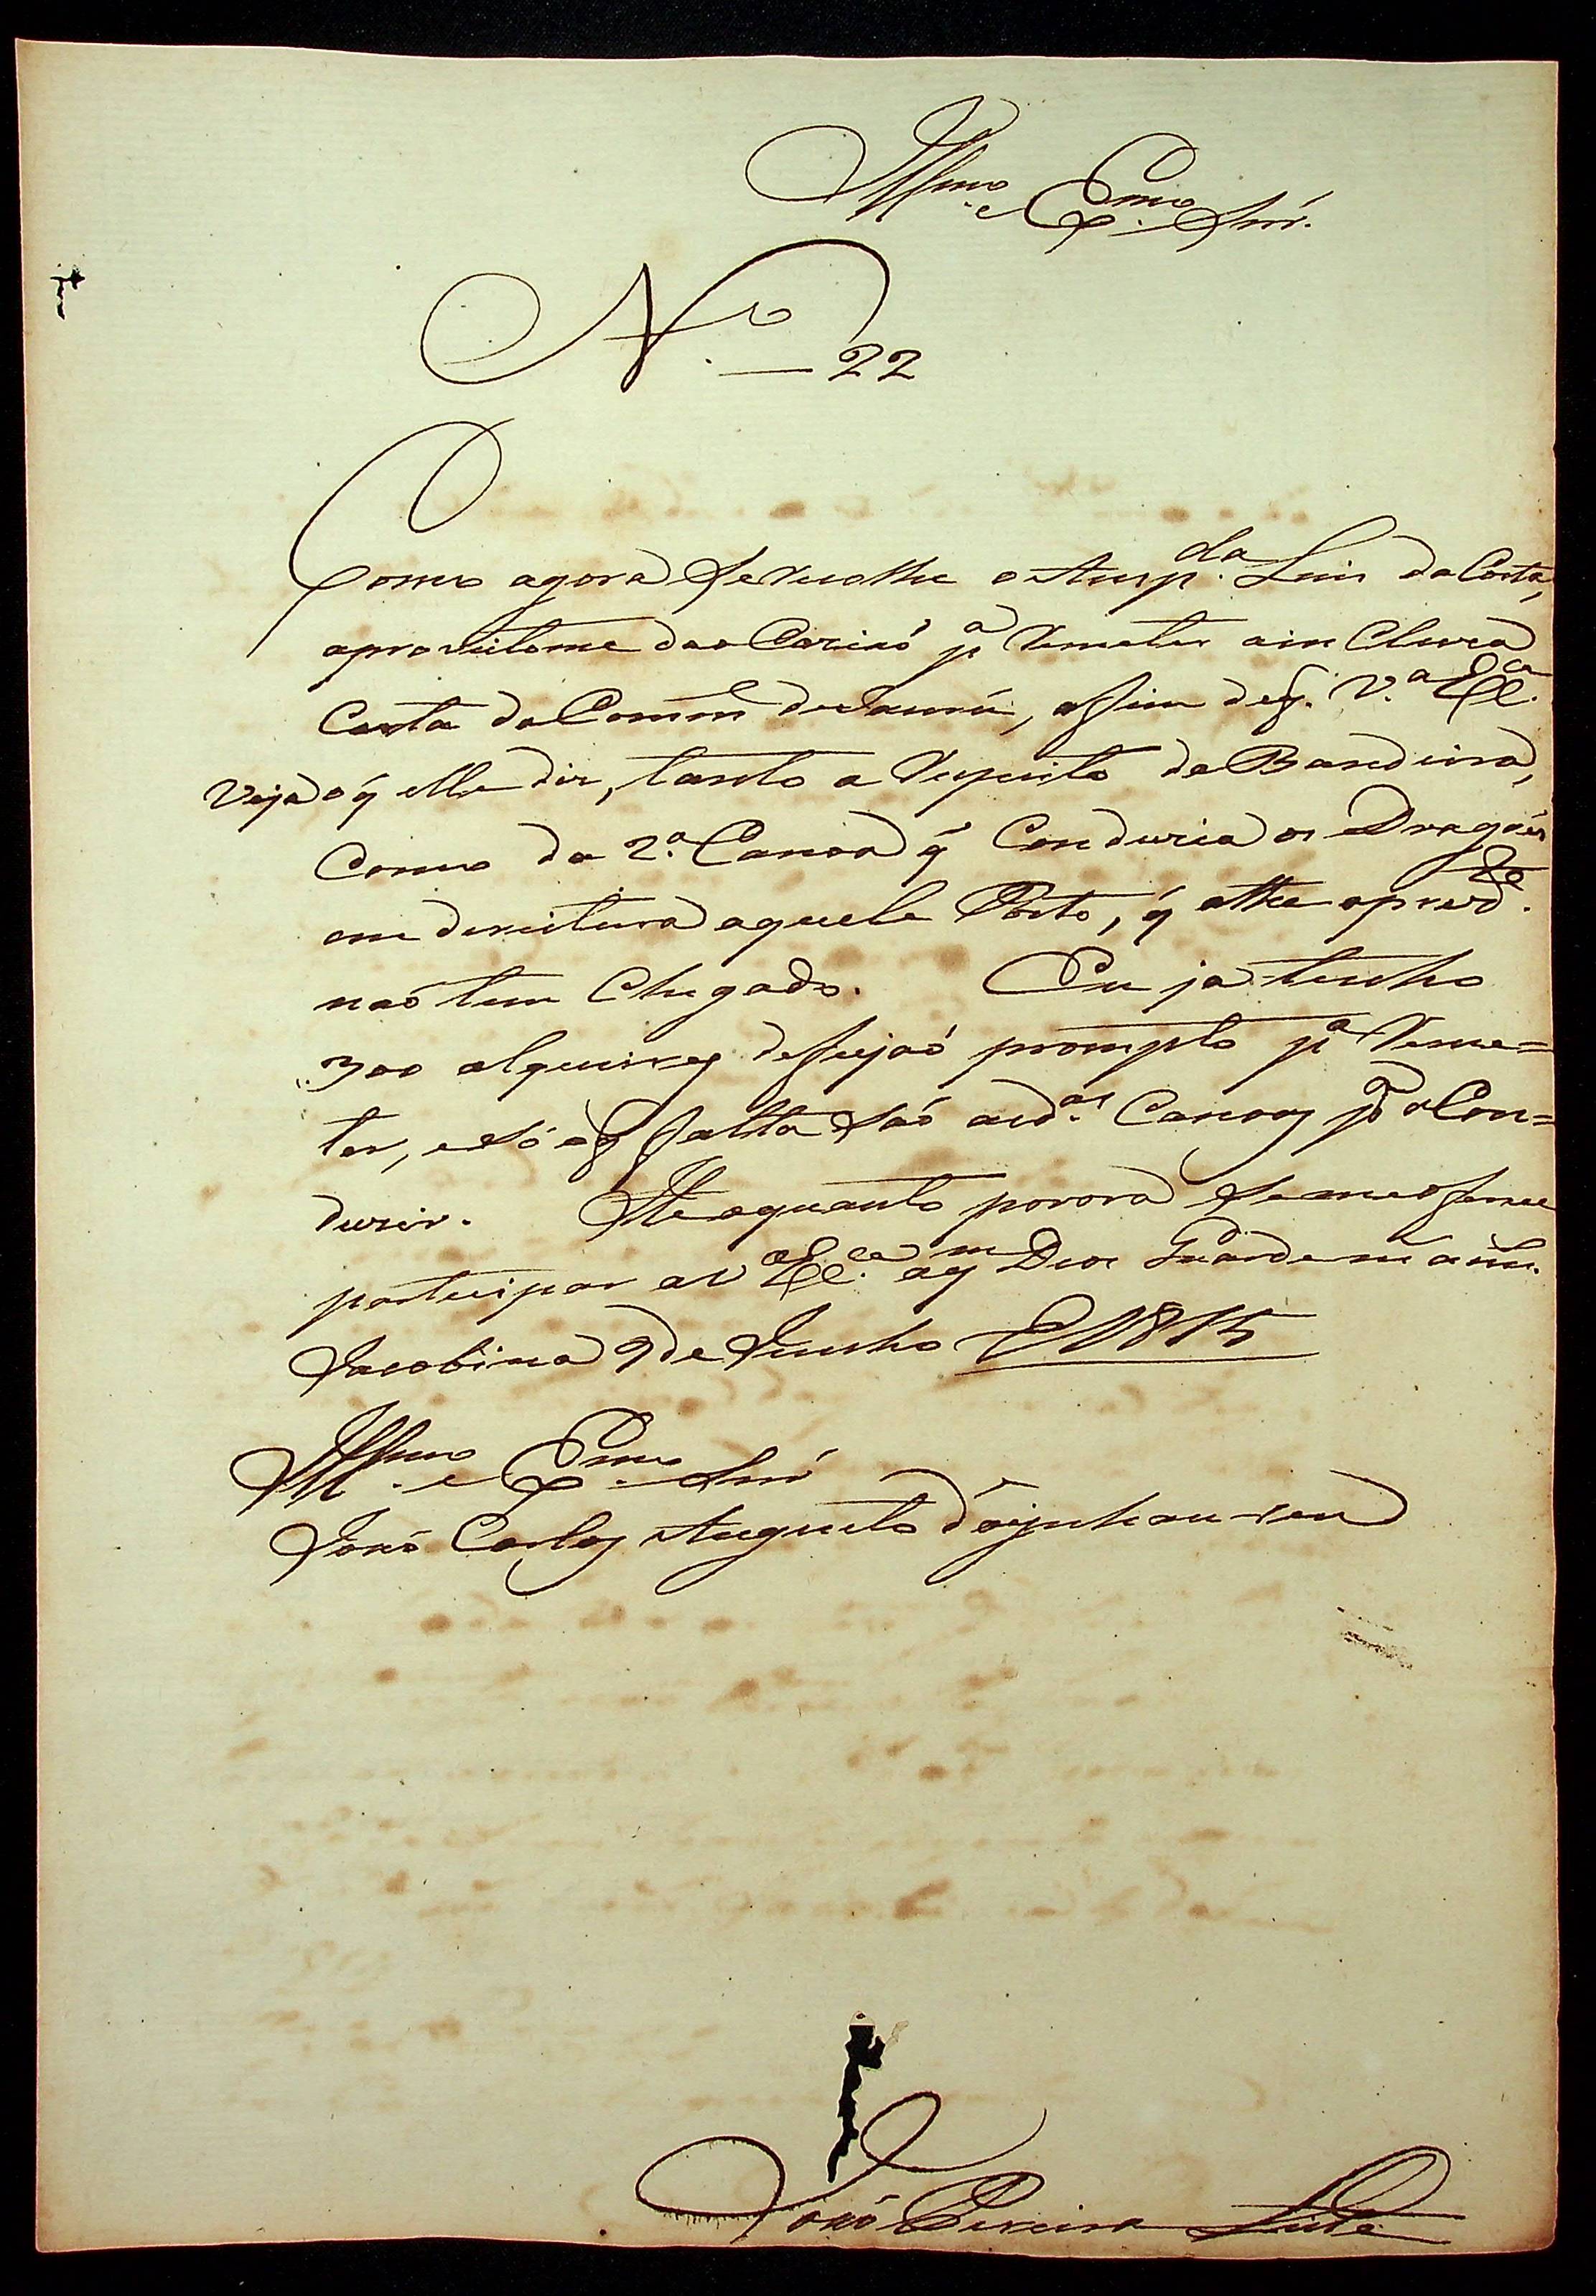 Illmo. e Exmo. Snr.
N.o — 22
Como agora se recolhe o Ansp.da Luis da Costa,
aproveitome da ocazião p.a remeter a incluza
Carta do Comm.e de Jaurú, afim de q. V.a Ex.ca
veja o q elle diz, tanto a respeito da Bandeira,
como da 2.a Canoa q Conduzia os Dragões
em direitura aquele Porto, q athe oprez.te
naõ tem Chegado. Eu ja tenho
300 alqueires defeijaõ prompto p.a Reme=
ter, e só o q falta saõ as d.as Canoas p.a o Con=
duzir. He oquanto porora se me oferece
partecipar a V Ex.ca aq.m Deos Guarde m. an.
Jacobina 9 de Junho D 1815
Illmo. e Exmo. Snr
Joaõ Carlos Augusto d'oijnhausen
Joaõ Pereira Leite